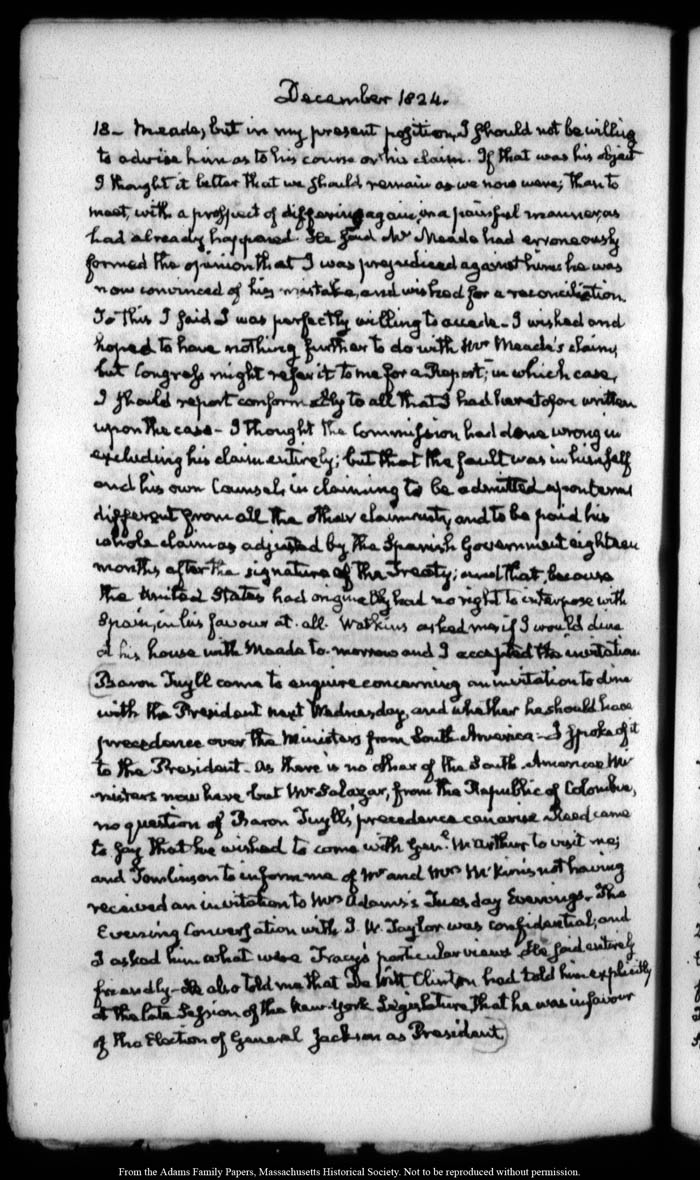 December 1824.
18- Meade, but in my present position, I should not be willing
to advise him as to his course or his claim. If that was his object
I thought it better that we should remain as we now were, than to
meet, with a prospect of differing again, in a painful manner, as
had already happened. He said Mr Meade had erroneously
formed the opinion that I was prejudiced against him: he was
now convinced of his mistake, and wished for a reconciliation.
To this I said I was perfectly willing to accede. I wished and
hoped to have nothing further to do with Mr Meade's claim,
but Congress might refer it to me for a Report; in which case,
I should report conformably to all that I had heretofore written
upon the case - I thought the Commission had done wrong in
excluding his claim entirely; but that the fault was in himself
and his own Counsel, in claiming to be admitted upon terms
different from all the other claimants, and to be paid his
whole claim as adjusted by the Spanish Government eighteen
months after the signature of the Treaty; and that, because
the United States had originally had no right to interpose with
Spain, in his favour at all. Watkins asked me if I would dine
at his house with Meade to-morrow and I accepted the invitation
Baron Tuyll came to enquire concerning an invitation to dine
with the President next Wednesday, and whether he should have
precedence over the Ministers from South-America - I spoke of it
to the President. As there is no other of the South American Mi-
nisters now here but Mr Salazar, from the Republic of Colombia,
no question of Baron Tuyll's precedence can arise. Reed came
to say that he wished to come with Genl. McArthur to visit me;
and Tomlinson to inform me of Mr and Mrs McKim's not having
received an invitation to Mrs Adams's Tuesday Evenings. The
Evening Conversation with J. W. Taylor was confidential; and
I asked him what were Tracy's particular views. He said entirely
friendly - He also told me that De Witt Clinton had told him explicitly
at the late Session of the New-York Legislature that he was in favour
of the Election of General Jackson as President.
From the Adams Family Papers, Massachusetts Historical Society. Not to be reproduced without permission.